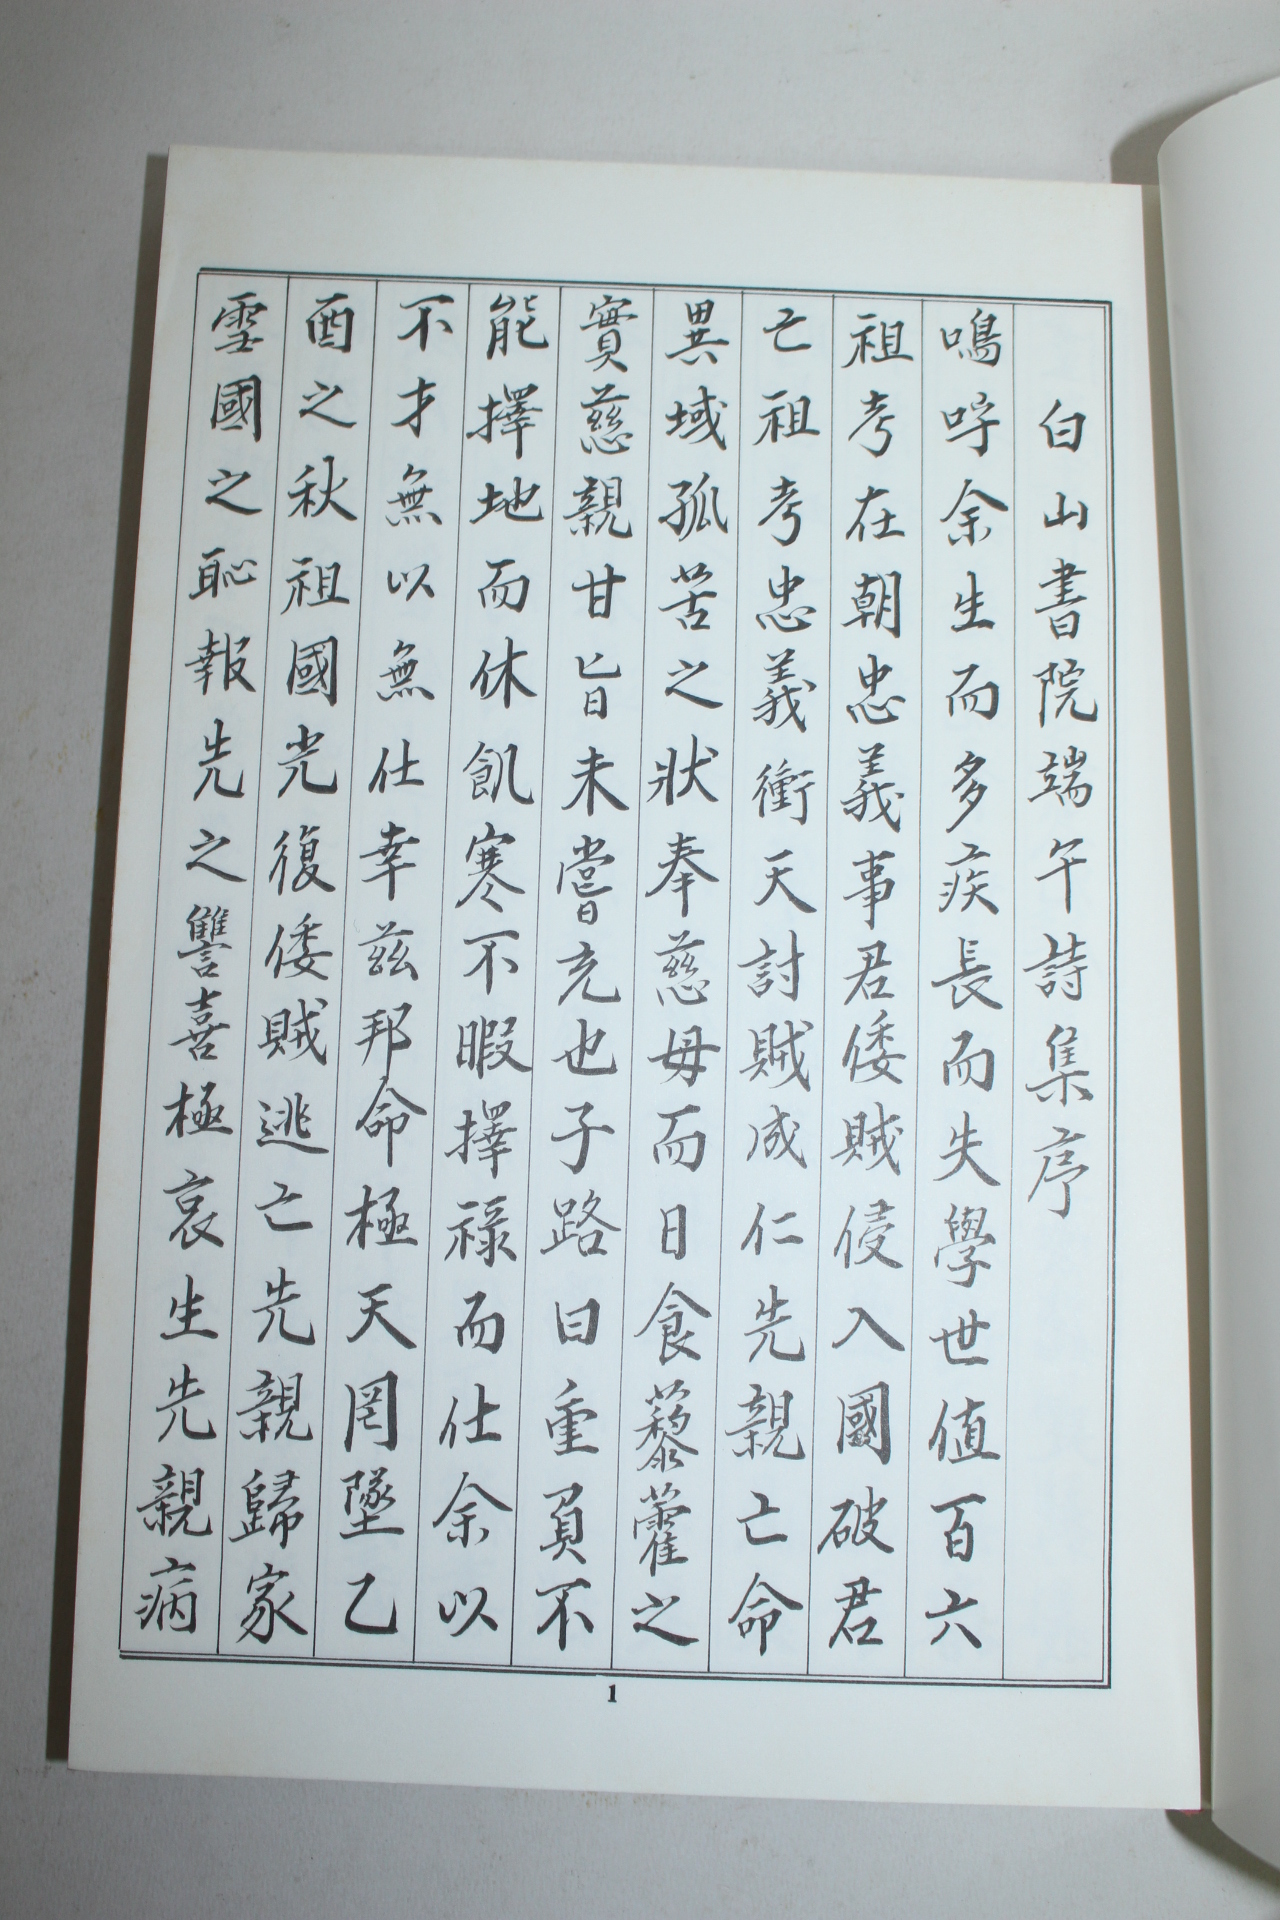 白山書院端午詩集序
鳴呼余生而多疾長而失學世值百六
祖考在朝忠義事君倭賊侵入國破君
亡祖考忠義衝天討賊成仁先親亡命
異域孤苦之狀奉慈母而日食藜藿之
實慈親甘旨未嘗充也子路曰重負不
能擇地而休飢寒不暇擇祿而仕余以
不才無以無仕幸茲邦命極天罔墜乙
酉之秋祖國光復倭賊逃亡先親歸家
雪國之恥報先之讐喜極哀生先親病
1